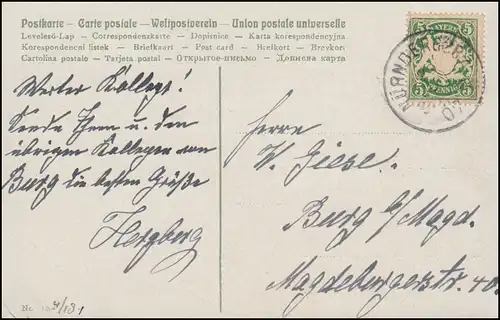 Postkarte – Carte postale – Weltpostverein – Union postale universelle
Levelező-Lap – Correspondenzkarte – Dopisnice – Karta korespondencyjna
Korespondenční lístek – Briefkaart – Post card – Brefkort – Brevkort
Cartolina postale – Tarjeta postal – Открытое письмо – Дописна карта
5 5
PFENNIG
5 5
NÜRNBERG
07
Werter Kollege!
Sende Ihnen u. den
übrigen Kollegen von
Burg die besten Grüße
Hergberg
Herrn
W. Giese.
Burg b/Magd.
Magdeburgerstr. 40.
No.